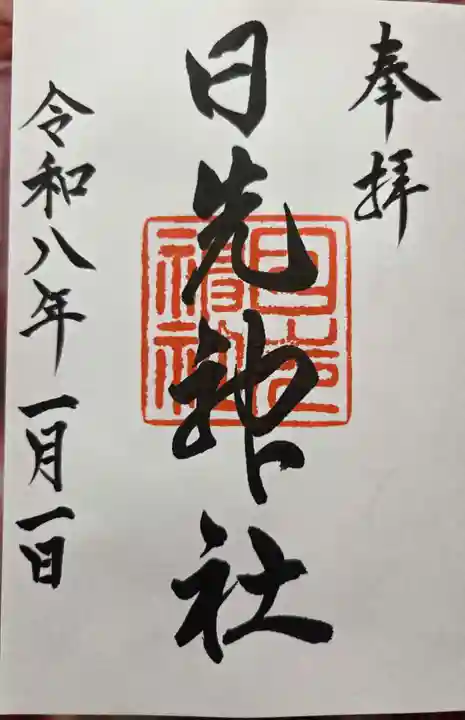 奉拝
日先神社
令和八年一月一日